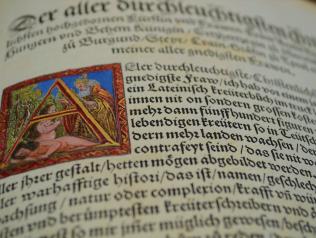 Der aller durchleuchtigsten
hochgebornen Fürstin und Frawen
Hungern und Behem Künigin
zů Burgund/Steyr/Crain
meiner aller gnedigsten Frawen.
Aler durchleuchtigste/Christlich
gnedigste Fraw/ich hab vor
ein Lateinisch kreüterbůch
innen mit on sondern grossen
mehr dann fünffhundert figuren
lebendigen kreütern so in Teütschen
dern mehr landen wachsen/der
contrafeyt seind/das sie nit
aller jhrer gestalt/hetten mögen abgebildet werden
aller warhafftige histori/das ist/namen/geschlecht
wachsung/natur oder complexion/krafft und
und berümptesten kreüterschreibern und
so mir jmer müglich gewesen/besch